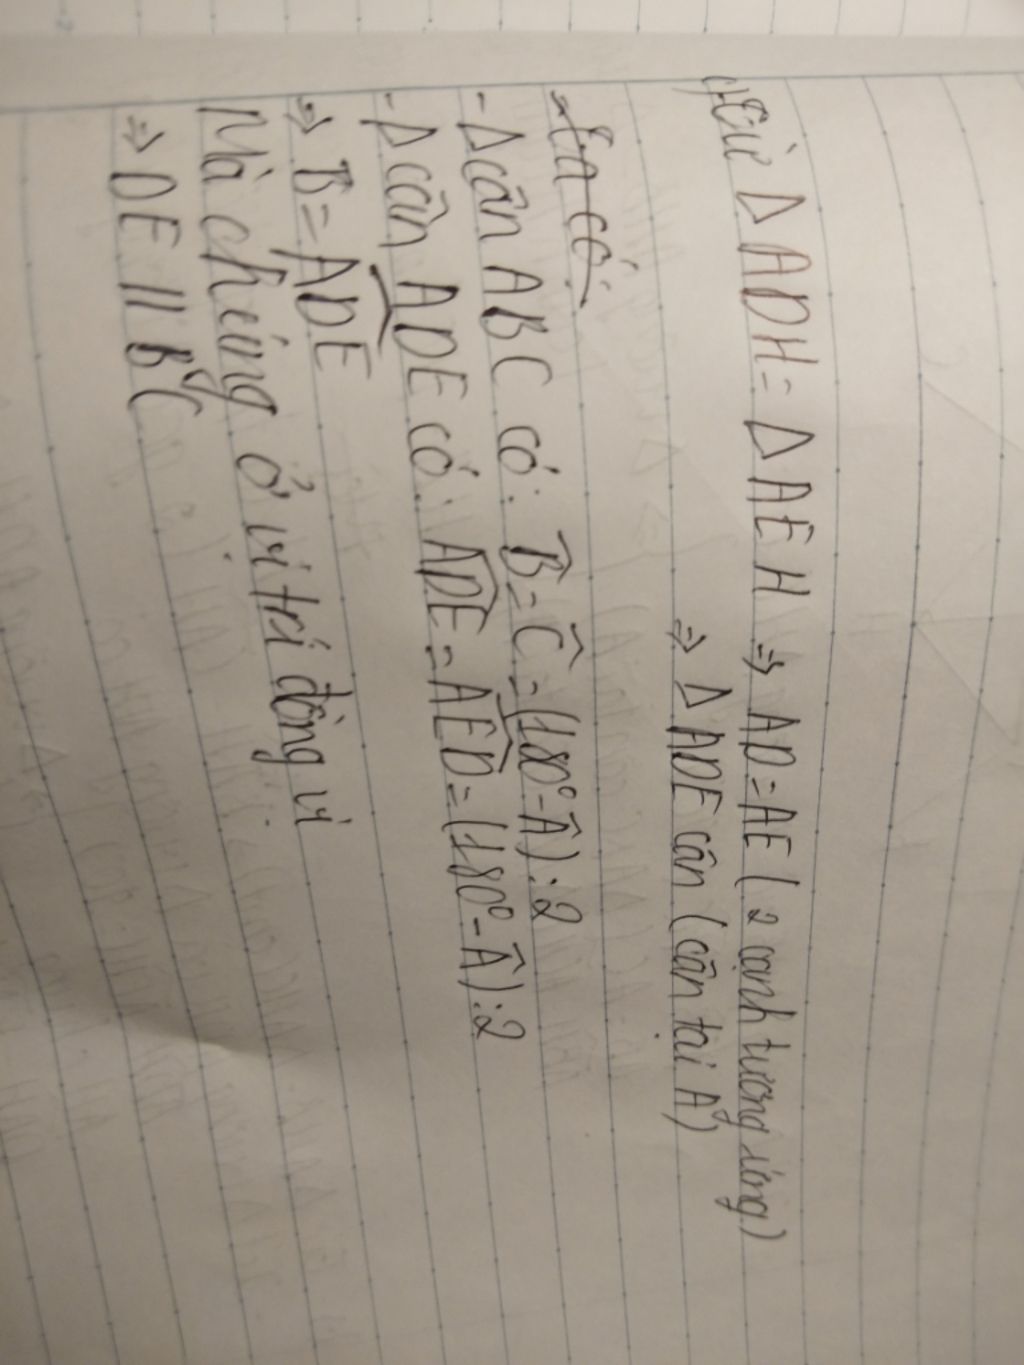 c) Từ Δ ADH = Δ AEH ⇒ AD = AE (2 cạnh tương ứng)
⇒ Δ ADE cân (cân tại A)
Ta có:
- Δ cân ABC có: B̂ = Ĉ = (180° - Â) : 2
- Δ cân ADE có: ADE = AED = (180° - Â) : 2
⇒ B̂ = ADE
Mà chúng ở vị trí đồng vị
⇒ DE // BC